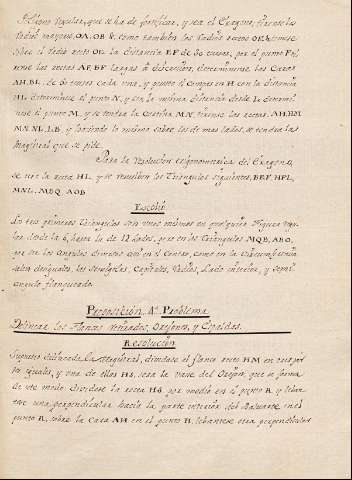 Polígono regular, que se ha de fortificar, y sea el Exagono; tirense los
Radios mayores, OA, OB &. como tambien los Radios rectos OE, tomese
sobre el radio recto OE la distancia EF de 30 tuesas, por el punto F, ti-
rense las rectas AF, BF largas á discrecion, determinense las Caras
AH, BL, de 50 tuesas cada una, y puesto el Compas en H con la distancia
HL determinese el punto N, y con la misma distancia desde L determi-
nese el punto M, y se tendra la Cortina MN. tirense las rectas, AH, HM
MN, NL, LB, y haciendo lo mismo sobre los demas lados, se tendra la
Magistral que se pide.
Para la Resolucion trigonometrica del Exagono,
se tira la recta HL, y se resuelben los Triangulos siguientes, BEF, HFL,
MNL, MBQ, AOB
Escolio
Los tres primeros Triangulos son unos mismos en qualquier Figura regu-
lar, desde la 6, hasta la de 12 lados, pero en los Triangulos MQB, ABO,
por ser los Angulos distintos assi en el Centro, como en la Circumferencia
salen desiguales, las semigolas, Capitales, Radios, Lado interior, y semi
angulo flanqueado.
Proposicion 4ª Problema
Delinear los Flancos retirados, Orejones, y Espaldas.
Resolucion
Supuesto delineada la Magistral, dividase el flanco recto HM en tres par-
tes iguales, y una de ellas HS, sera la vase del Orejon, que se forma
de este modo. Dividase la recta HS por medio en el punto R, y leban-
tese una perpendicular hacia la parte interior del Baluarte en el
punto R, sobre la Cara AH en el punto H, lebantese otra perpendicular